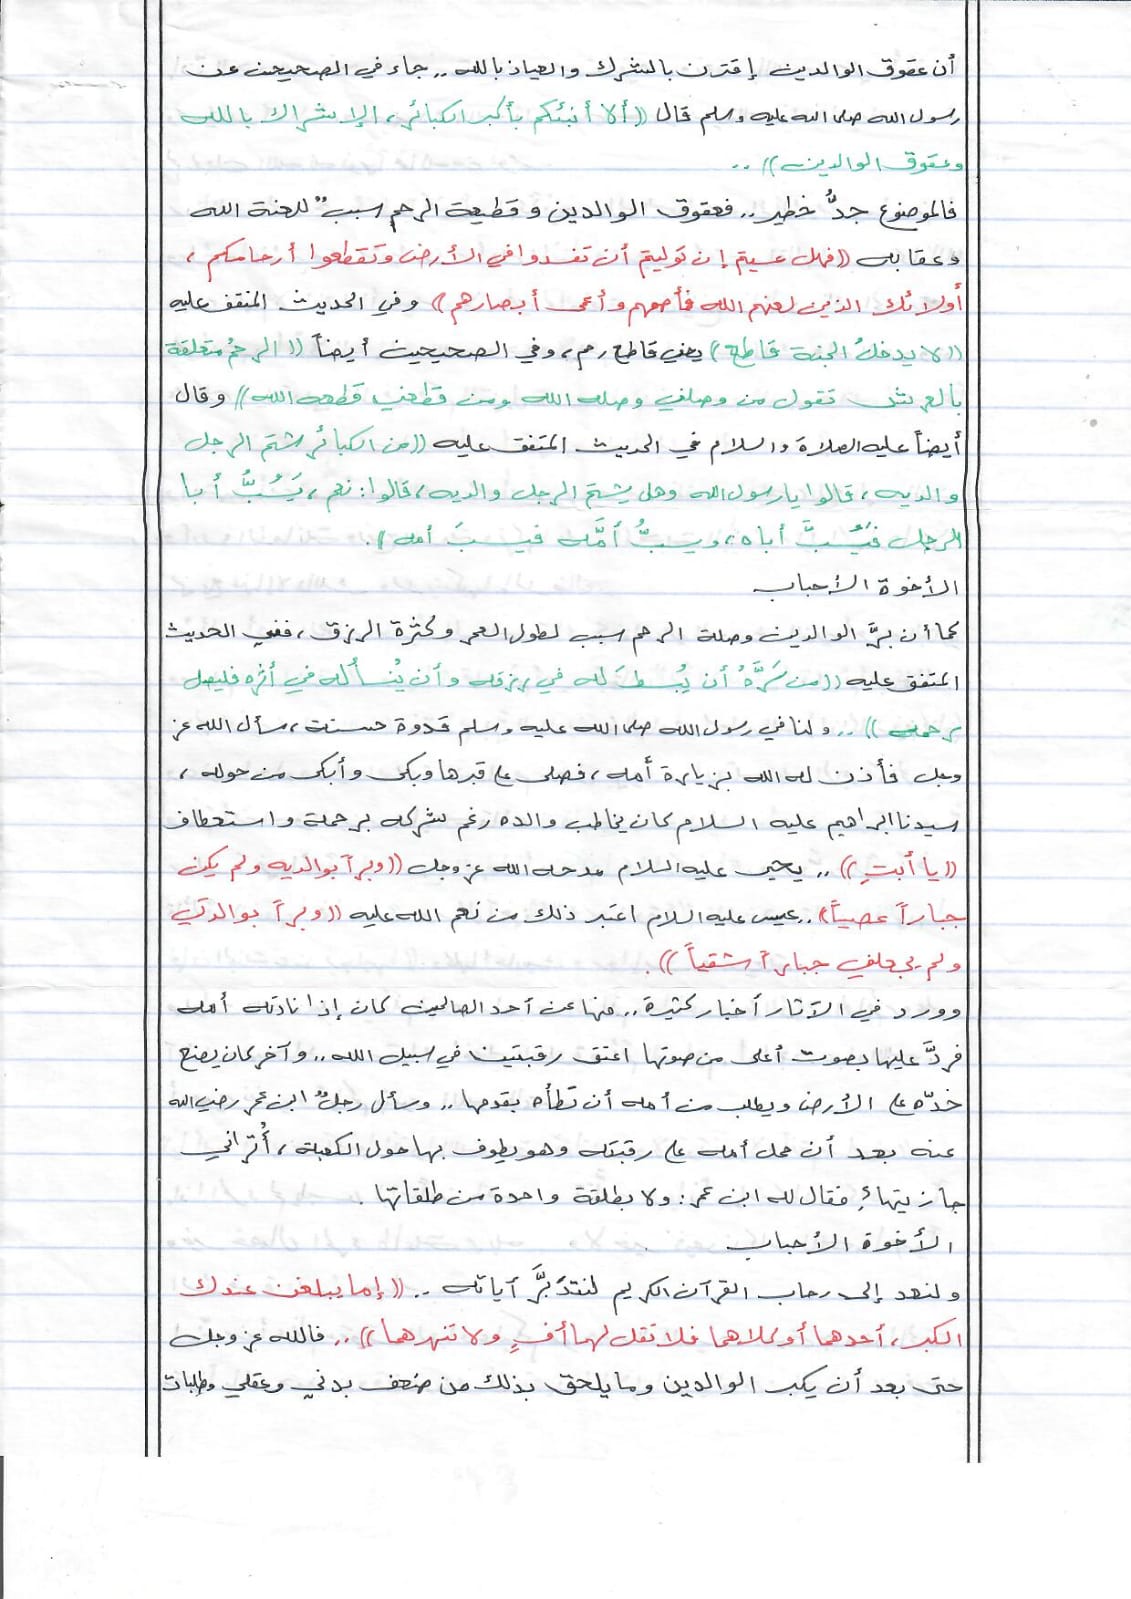 أن عقوق الوالدين إقترن بالشرك والعياذ بالله .. جاء في الصحيحين عن
رسول الله صلى الله عليه وسلم قال ((ألا أنبئكم بأكبر الكبائر، الإشراك بالله
وعقوق الوالدين)) ..
فالموضوع جدُّ خطير .. فعقوق الوالدين وقطيعة الرحم سببٌ للعنة الله
وعقابه ((فهل عسيتم إن توليتم أن تفسدوا في الأرض وتقطعوا أرحامكم ،
أولائك الذين لعنهم الله فأصمهم وأعمى أبصارهم)) وفي الحديث المتفق عليه
((لا يدخلُ الجنة قاطع)) يعني قاطع رحم، وفي الصحيحين أيضاً ((الرحمُ متعلقة
بالعرش تقول من وصلني وصله الله ومن قطعني قطعه الله)) وقال
أيضاً عليه الصلاة والسلام في الحديث المتفق عليه ((من الكبائر شتم الرجل
والديه ، قالوا يا رسول الله وهل يشتم الرجل والديه، قالوا: نعم ، يَسُبُّ أبا
الرجل فيَسُبَّ أباه، ويسبُّ أمَّه فيسبَ أمه)).
الأخوة الأحباب
كما أن برَّ الوالدين وصلة الرحم سبب لطول العمر وكثرة الرزق ، ففي الحديث
المتفق عليه ((من سَرَّهُ أن يُبسطَ له في رزقه وأن يُنسأ له في أثره فليصل
رحمه)) .. ولنا في رسول الله صلى الله عليه وسلم قدوة حسنة ، سأل الله عز
وجل فأذن له الله بزيارة أمه ، فصلى على قبرها وبكى وأبكى من حوله ،
سيدنا ابراهيم عليه السلام كان يخاطب والده رغم شركه برحمة واستعطاف
((يا أبتِ)) .. يحيى عليه السلام مدحه الله عز وجل ((وبراً بوالديه ولم يكن
جباراً عصياً)) .. عيسى عليه السلام اعتبر ذلك من نعم الله عليه ((وبراً بوالدتي
ولم يجعلني جباراً شقياً)) .
وورد في الآثار أخبار كثيرة .. منها عن أحد الصالحين كان إذا نادته أمه
فردَّ عليها بصوت أعلى من صوتها اعتق رقبتين في سبيل الله .. وآخر كان يضع
خدّه على الأرض ويطلب من أمه أن تطأه بقدمها .. وسأل رجلٌ ابن عمر رضي الله
عنه بعد أن حمل أمه على رقبته وهو يطوف بها حول الكعبة ، أتُراني
جازيتها؟ فقال له ابن عمر: ولا بطلقة واحدة من طلقاتها .
الأخوة الأحباب
ولنعد إلى رحاب القرآن الكريم لنتدَبَّرَ آياته .. ((إما يبلغن عندك
الكبر ، أحدهما أو كلاهما فلا تقل لهما أفٍ ولا تنهرهما)) .. فالله عز وجل
حتى بعد أن يكبر الوالدين وما يلحق بذلك من ضعف بدني وعقلي وطلبات